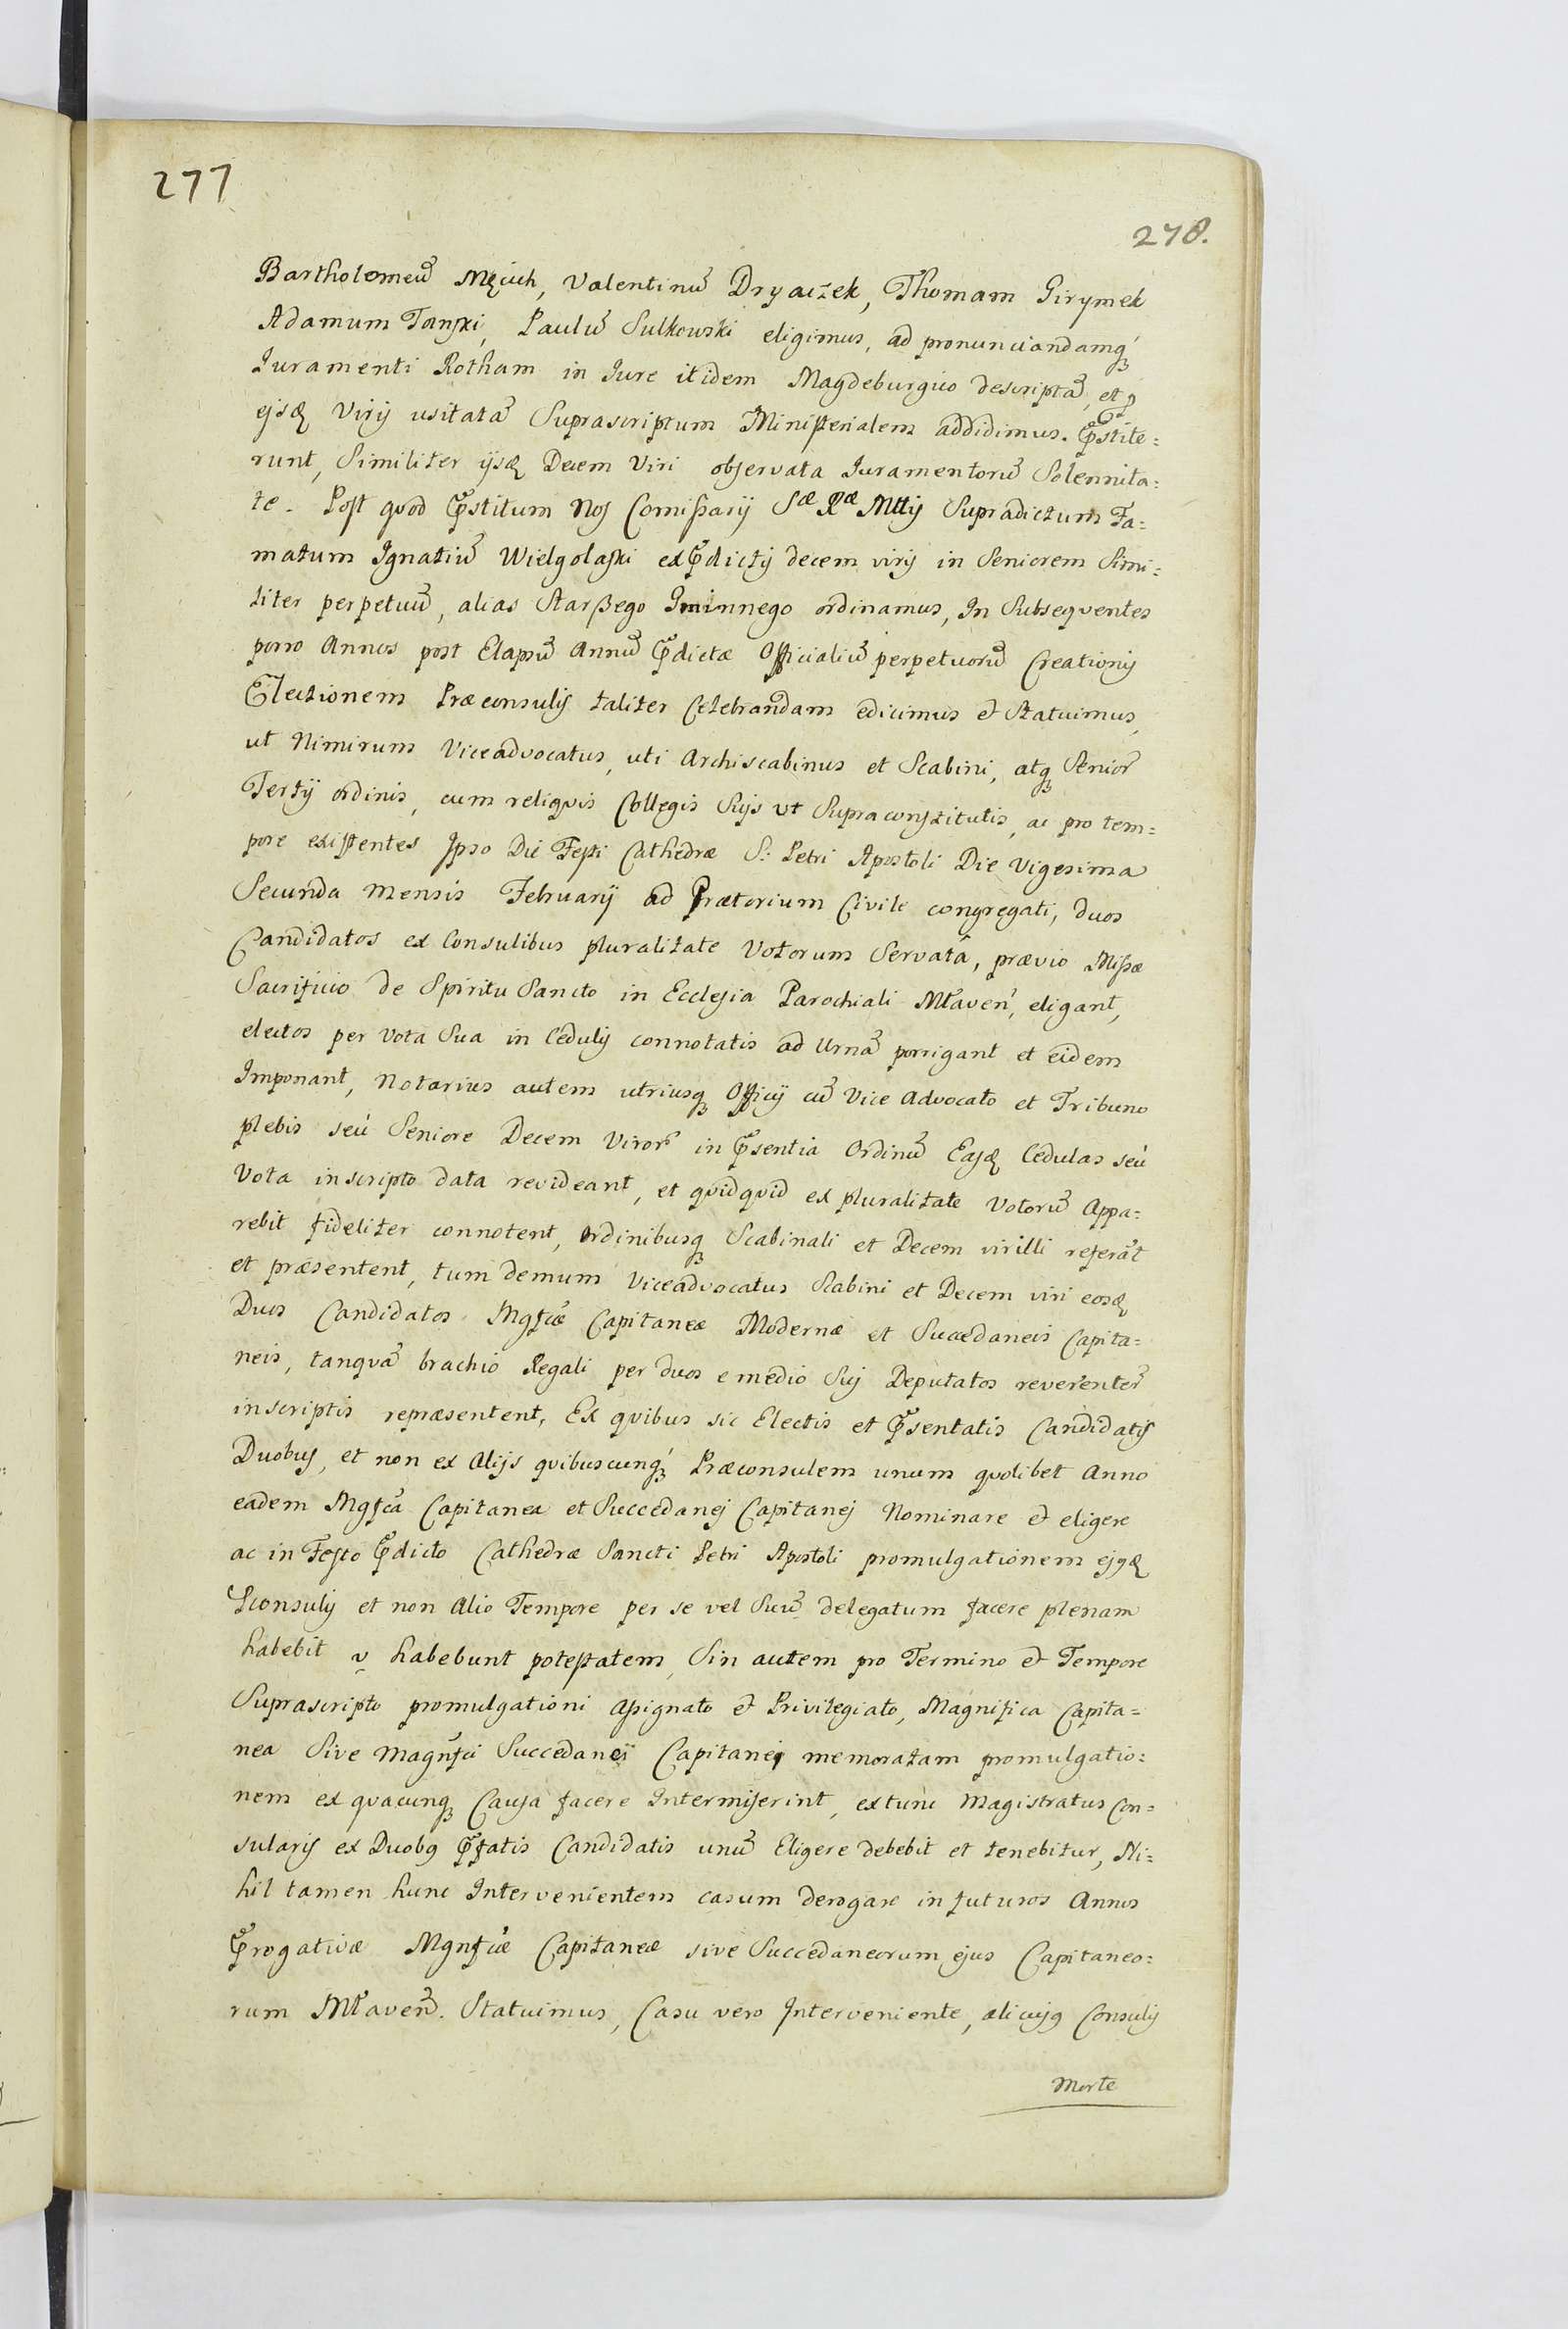 277
278.
Bartholomeũ Męcich, Valentinũ Dryaczek, Thomam Girymek
Adamum Tanski, Paulũ Sulkowski eligimus, ad pronunciandamq́
Iuramenti Rotham in Iure itidem Magdeburgico descriptã, et p
ejsđ Virij usitatã Suprascriptum Ministerialem addidimus. P̃stite:
runt, Similiter ijsđ Decem Viri observata Iuramentorũ Solennita:
te. Post quod P̃stitum Nos Comissarij Sæ Ræ Mttij Supradictum Fa:
matum Ignatiũ Wielgolaski ex P̃dictij decem virij in Seniorem Simi:
liter perpetuũ, alias Starszego Gminnego ordinamus, In Subseqventes
porro Annos post Elapsũ Annũ P̃dictæ Officialiũ perpetuorũ Creationij
Electionem Præconsulij taliter Celebrandam edicimus et Statuimus,
ut Nimirum Viceadvocatus, uti Archiscabinus et Scabini, atq Senior
Tertij ordinis, cum reliqvis Collegis Suis ut Supra constitutis, ac pro tem=
pore existentes Ipso Die Festi Cathedræ S: Petri Apostoli Die Vigesima
Secunda Mensis Februarij ad Prætorium Civile congregati, duos
Candidatos ex Consulibus pluralitate Votorum Servatâ, prævio Missæ
Sacrificio de Spiritu Sancto in Ecclesia Parochiali Młaveń, eligant,
electos per Vota Sua in Cedulij connotatis ad Urnã porrigant et eidem
Imponant, Notarius autem utriusq Officij cũ Vice Advocato et Tribuno
plebis seù Seniore Decem Viror̃ in P̃sentia Ordinũ Easđ Cedulas seù
Vota in scripto data revideant, et qvidqvid ex pluralitate Votorũ Appa=
rebit fideliter connotent, ordinibusq Scabinali et Decem virilli referãt
et præsentent, tum demum Viceadvocatus Scabini et Decem viri eosđ
Duos Candidatos Mgfcæ Capitaneæ Modernæ et Succedaneis Capita=
neis, tanqvã brachio Regali per duos e medio Sui Deputatos reverenter̃
in scriptis repræsentent, Ex qvibus sic Electis et P̃sentatis Candidatis
Duobus, et non ex Alijs qvibuscunq́ Præconsulem unum qvolibet Anno
eadem Mgfcã Capitanea et Succedanej Capitanej Nominare et eligere
ac in Festo P̃dicto Cathedræ Sancti Petri Apostoli promulgationem ejgđ
Pconsulij et non Alio Tempore per se vel Suũ delegatum facere plenam
habebit v habebunt potestatem, Sin autem pro Termino et Tempore
Suprascripto promulgationi assignato et Privilegiato, Magnifica Capita=
nea Sive Magnfci Succedanei Capitanei memoratam promulgatio:
nem ex qvacunq Causa facere Intermiserint, extunc Magistratus Con=
sularis ex Duobg P̃fatis Candidatis unũ Eligere debebit et tenebitur, Ni=
hil tamen hunc Intervenientem casum derogare in futuros Annos
P̃rogativæ Mgnfcæ Capitaneæ sive Succedaneorum ejus Capitaneo:
rum Młaveñ. Statuimus, Casu vero Interveniente, alicujg Consulij
Morte